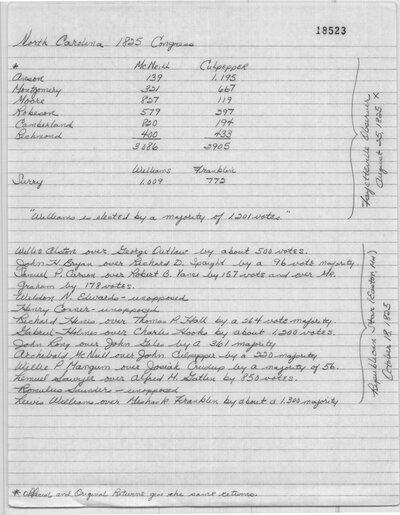 18523
North Carolina 1825 Congress
* McNeill Culpepper
Anson 139 1,195
Montgomery 321 667
Moore 827 119
Robeson 579 297
Cumberland 820 194
Richmond 400 433
3086 2905
Williams Franklin
Surry 1,009 772
"Williams is elected by a majority of 1201 votes."
Fayetteville Observer
August 25, 1825 X
Willis Alston over George Outlaw by about 500 votes.
John H. Bryan over Richard D. Spaight by a 96 vote majority.
Samuel P. Carson over Robert B. Vance by 157 vote and over Mr.
Graham by 178 votes.
Weldon N. Edwards - unopposed
Henry Conner - unopposed
Richard Hines over Thomas P. Hall by a 264 vote majority
Gabriel Holmes over Charles Hooks by about 1,200 votes.
John Long over John Giles by a 361 majority
Archibald McNeill over John Culpepper by a 220 majority
Willie P. Mangum over Josiah Crudup by a majority of 56.
Lemuel Sawyer over Alfred M. Gatlin by 850 votes.
Romulus Saunders - unopposed
Lewis Williams over Meshack Franklin by about a 1,300 majority
Republican Star (Easton, Md)
October 18, 1825
* Official and Original Returns give the same returns.